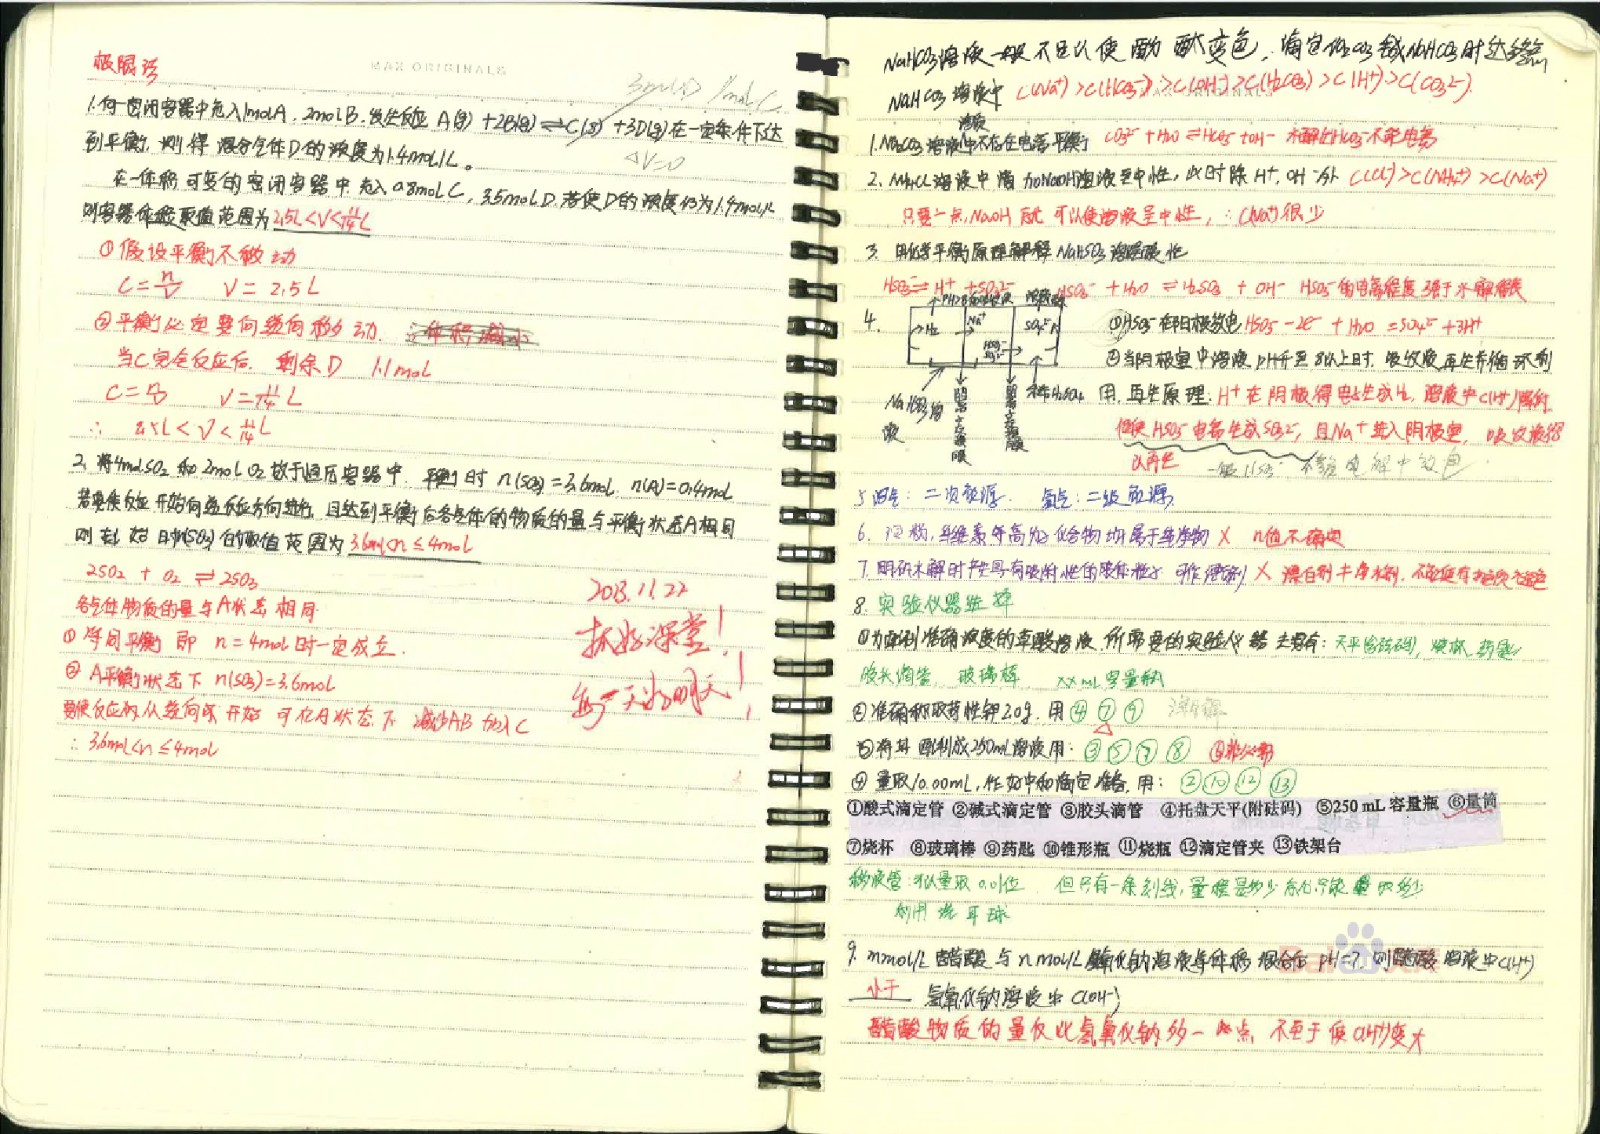 极限法
MAX ORIGINALS
3molD 1molC
1.向一密闭容器中充入1molA，2molB，发生反应 A(g) + 2B(g) ⇌ C(g) + 3D(g) 在一定条件下达
到平衡，测得混合气体D的浓度为1.4mol/L。
△V=0
在一体积可变的密闭容器中充入0.8molC，3.5molD，若使D的浓度仍为1.4mol/L
则容器体积取值范围为 2.5L<V<11/14L
①假设平衡不移动
C=n/V V=2.5L
②平衡必定要向逆向移动.
当C完全反应后，剩余D 1.1mol
C=n/V V=11/14 L
∴ 2.5L<V<11/14L
2. 将4molSO₂和2molO₂放于恒压容器中，平衡时 n(SO₃)=3.6mol n(A)=0.4mol
若要使反应开始向逆反应方向进行，且达到平衡后各气体的物质的量与平衡状态A相同
则起始时n(SO₃)的取值范围为 3.6mol<n≤4mol
2SO₂ + O₂ ⇌ 2SO₃
各气体物质的量与A状态相同
①等同平衡 即 n=4mol时一定成立.
②A平衡状态下 n(SO₃)=3.6mol
要使反应从逆向开始 可在A状态下 减少AB 加入C
∴ 3.6mol<n≤4mol
2013.11.22
抓好课堂！
每一天为明天！
NaHCO₃溶液一般不足以使酚酞变色，滴定Na₂CO₃ NaHCO₃时达终点
NaHCO₃溶液中 C(Na⁺)>C(HCO₃⁻)>C(OH⁻)>C(H₂CO₃)>C(H⁺)>C(CO₃²⁻)
溶液
1.Na₂CO₃溶液中不存在电离平衡 CO₃²⁻+H₂O⇌HCO₃⁻+OH⁻ 水解出HCO₃⁻不能电离
2. NH₄Cl溶液中滴加NaOH溶液至中性，此时除H⁺,OH⁻外 C(Cl⁻)>C(NH₄⁺)>C(Na⁺)
只要一点NaOH就可以使溶液呈中性，∴C(Na⁺)很少
3. 用化学平衡原理解释NaHSO₃溶液酸性
HSO₃⁻⇌H⁺+SO₃²⁻ HSO₃⁻+H₂O⇌H₂SO₃+OH⁻ HSO₃⁻的电离程度强于水解程度
4. H₂ Na⁺ SO₄²⁻ ①HSO₃⁻在阳极放电HSO₃⁻-2e⁻+H₂O=SO₄²⁻+3H⁺
②当阴极室中溶液pH升至8以上时，吸收液再生并循环利
NaHSO₃溶液 阴离子交换膜 稀H₂SO₄ 用，再生原理：H⁺在阴极得电子生成H₂，溶液中c(H⁺)降低
促使HSO₃⁻电离生成SO₃²⁻，且Na⁺进入阴极室，吸收液得
以再生 一般HSO₃⁻
5 沼气：二次能源. 氢气：二级能源.
6. 淀粉，纤维素等高分子化合物均属于纯净物 X n值不确定
7. 明矾水解时产生具有吸附性的胶体粒子 可作漂白剂 X
8. 实验仪器选择
①为配制准确浓度的草酸溶液，所需要的实验仪器主要有：天平(含砝码)，烧杯，药匙，
胶头滴管，玻璃棒， XX mL容量瓶
②准确称取苛性钾20g，用 ④⑦⑨
③将其配制成250mL溶液用：③⑤⑦⑧
④量取10.00mL，作为中和滴定准备，用：②⑩⑫⑬
①酸式滴定管 ②碱式滴定管 ③胶头滴管 ④托盘天平(附砝码) ⑤250 mL 容量瓶 ⑥量筒
⑦烧杯 ⑧玻璃棒 ⑨药匙 ⑩锥形瓶 ⑪烧瓶 ⑫滴定管夹 ⑬铁架台
移液管：可以量取0.01位，但只有一条刻线，量程是多少就只能量取多少
利用洗耳球
9. mmol/L 醋酸与nmol/L氢氧化钠溶液等体积混合后pH=7，则醋酸溶液中c(H⁺)
小于 氢氧化钠溶液中c(OH⁻)
醋酸物质的量仅比氢氧化钠多一点，不至于使c(H⁺)变大